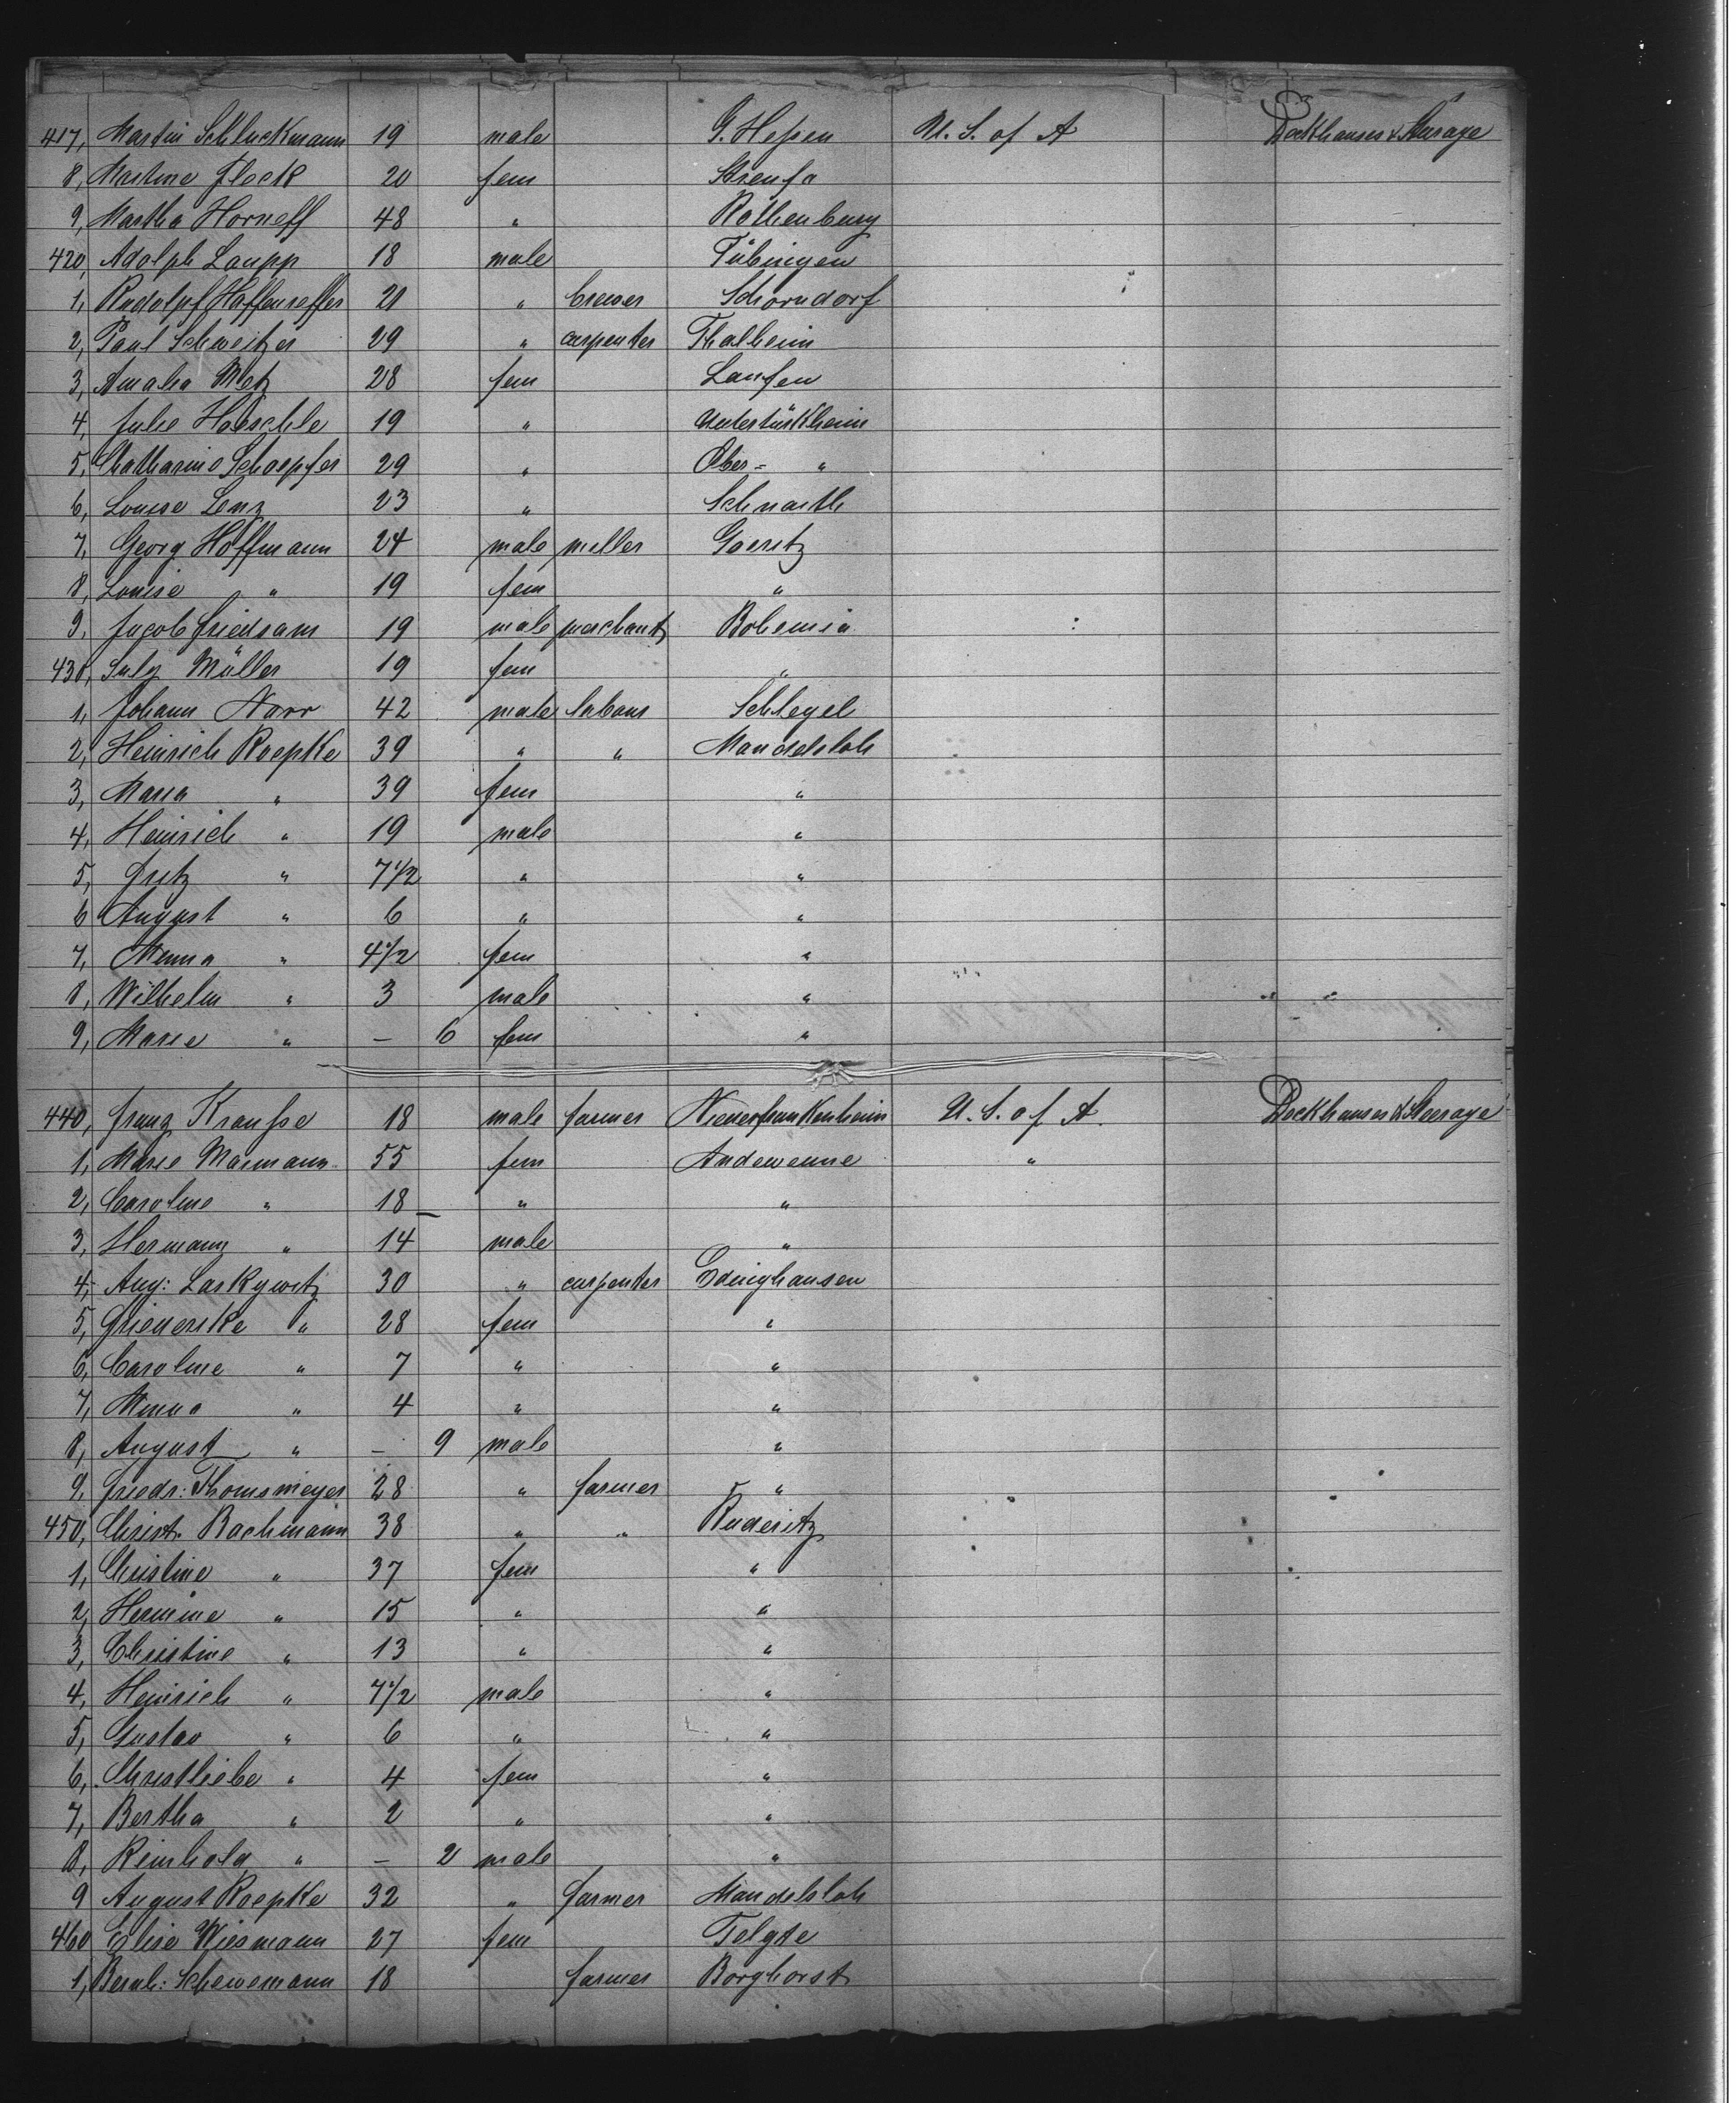 417, Martin Schluckmann 19 male G. Hessen U. S. of A Deckhouses & Steerage
8, Martine Fleck 20 fem
9, Martha Horneff 48 " Rothenburg
420, Adolph Laupp 18 male Tübingen
1, Rudolpf Haffenreffer 21 " brewer Schorndorf
2, Paul Schweitzer 29 " carpenter Thalheim
3, Amalia Metz 28 fem Laufen
4, Julie Hoeschle 19 " Untertürkheim
5, Chatharine Schoepfer 29 " Ober- "
6, Louise Lenz 23 " Schnaith
7, Georg Hoffmann 24 male miller Goeritz
8, Louise " 19 fem "
9, Jacob Friedsam 19 male merchant Bohemia
430, Müller 19 fem "
1, Johann Narr 42 male labour Schlegel
2, Heinrich Roepke 39 " " Mandelsloh
3, Maria " 39 fem "
4, Heinrich " 19 male "
5, Fritz " 7 1/2 " "
6 August " 6 " "
7, Minna " 4 1/2 fem "
8, Wilhelm " 3 male "
9, Marie " — 6 fem "
440, Franz Krausse 18 male farmer Niederfrankenheim U. S. of A. Deckhouses & Steerage
1, Marie Marmann 55 fem "
2, Caroline " 18 " "
3, Hermann " 14 male "
4, Aug: Laskywitz 30 " carpenter Edinghausen
5, Friederike " 28 fem "
6, Caroline " 7 " "
7, Minna " 4 " "
8, August " — 9 male "
9, Friedr: Thomsmeyer 28 " farmer "
450, Christ. Bachmann 38 " " Ruderitz
1, Christine " 37 fem "
2, Hermine " 15 " "
3, Christine " 13 " "
4, Heinrich " 7 1/2 male "
5, Gustav " 6 " "
6, Christliebe " 4 fem "
7, Bertha " 2 " "
8, Reinhold " — 2 male "
9 August Roepke 32 " farmer Mandelsloh
460 Elise Wiesmann 27 fem Telgte
1, Bernh: Schewemann 18 farmer Borghorst